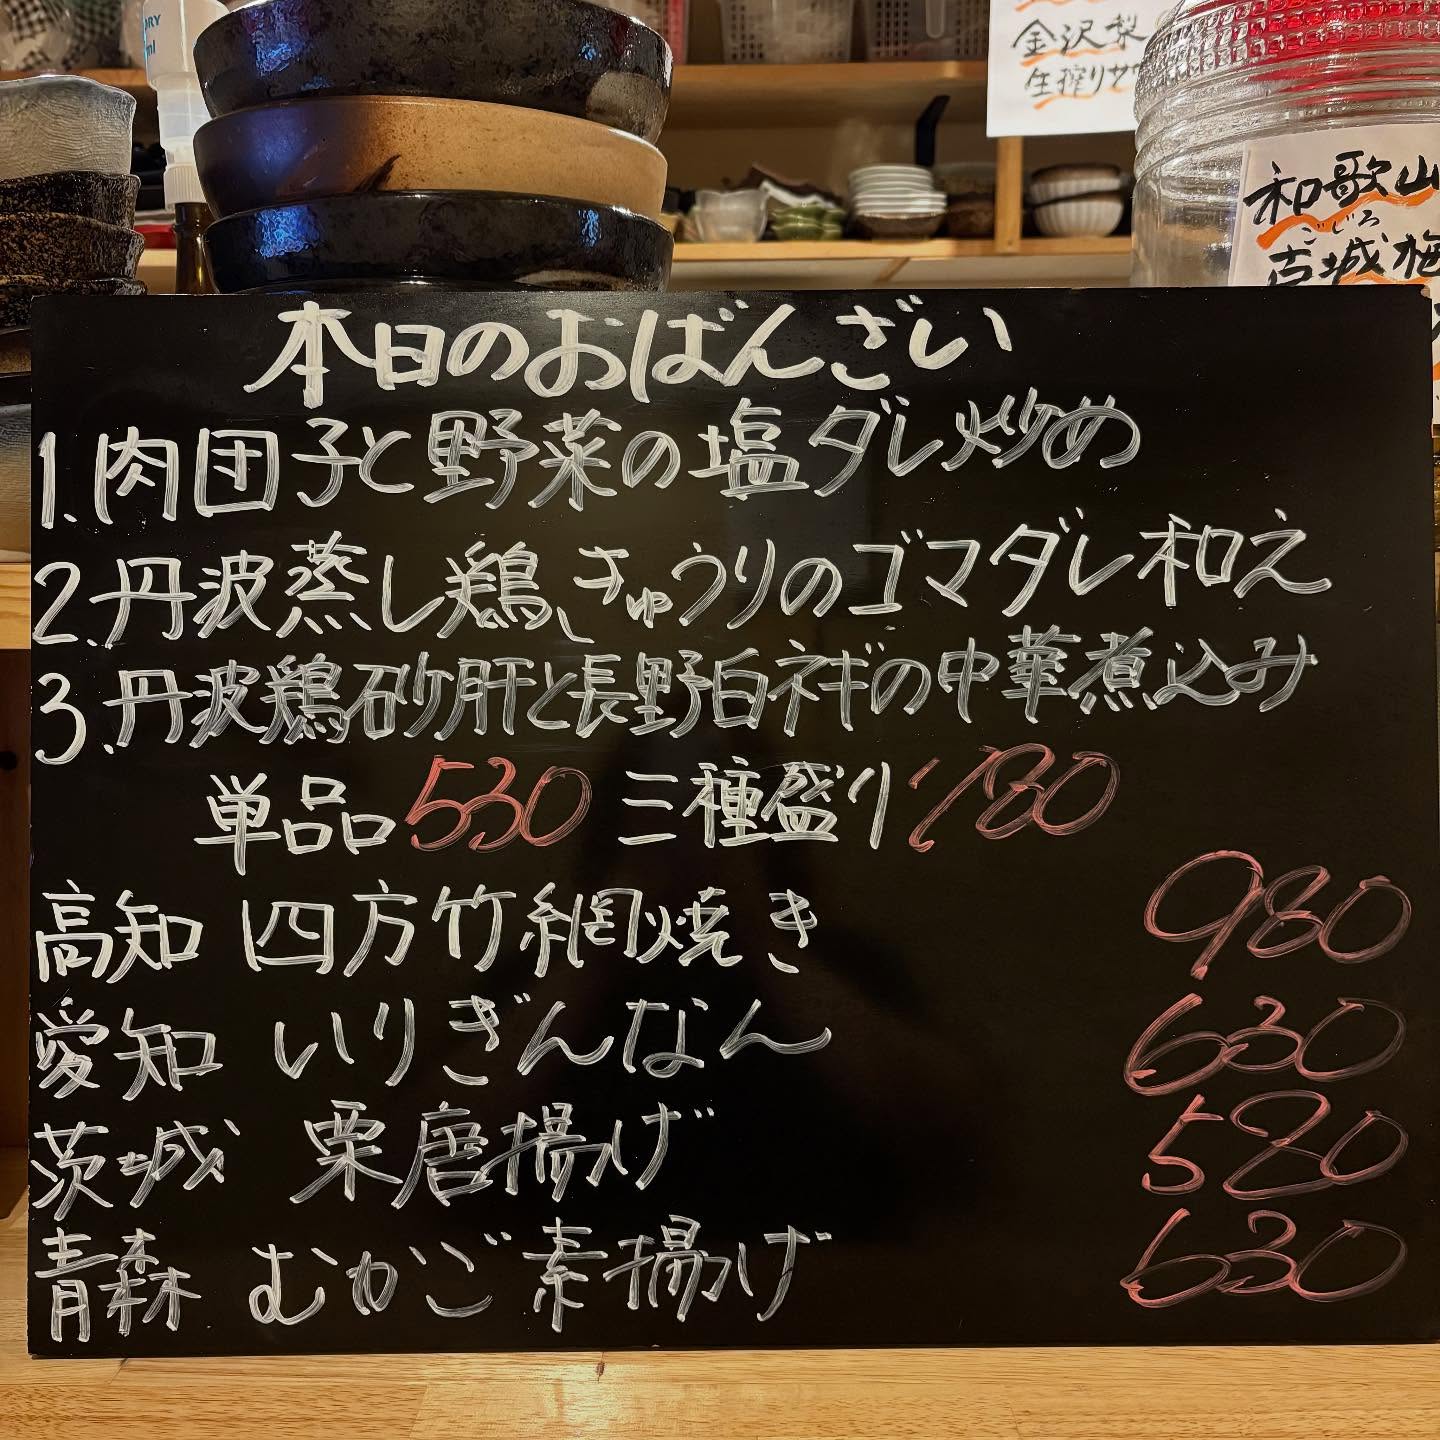 金沢梨
生搾りサワ
和歌山
ごじろ
古城梅
本日のおばんざい
1.肉団子と野菜の塩ダレ炒め
2.丹波蒸し鶏、きゅうりのゴマダレ和え
3.丹波鶏砂肝と長野白ネギの中華煮込み
単品530 三種盛り1,180
高知 四方竹網焼き 980
愛知 いりぎんなん 630
茨城 栗唐揚げ 520
青森 むかご素揚げ 630